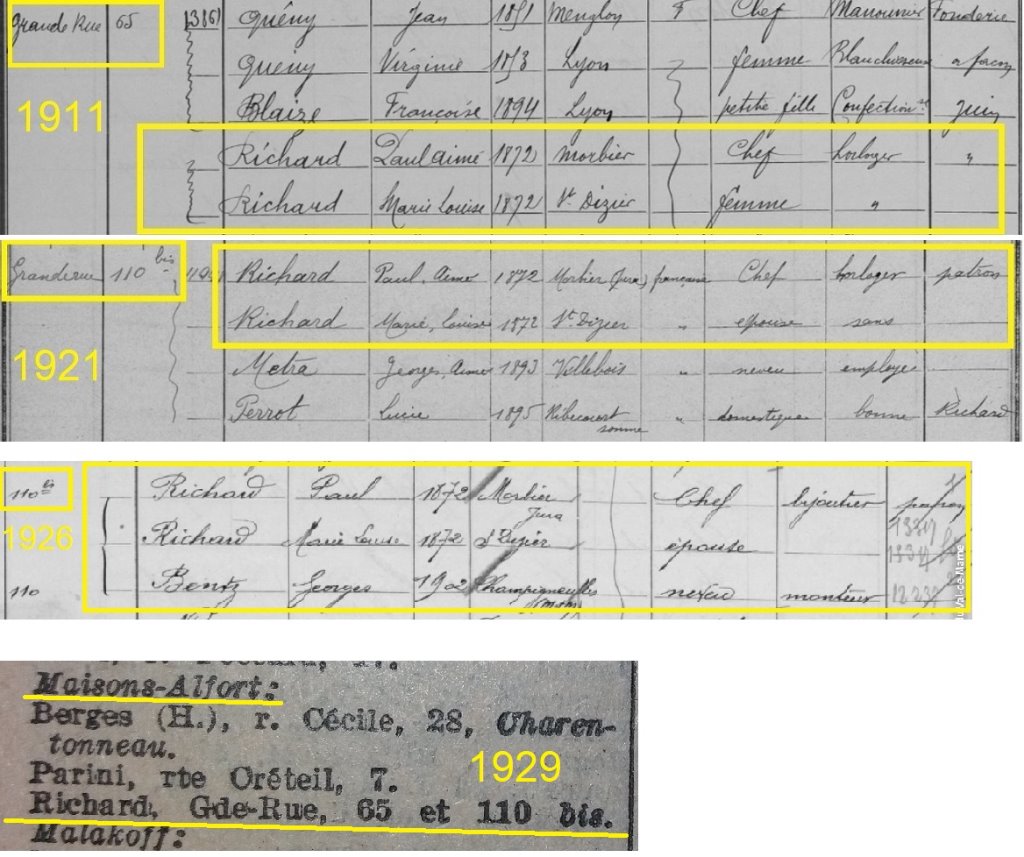 Grande Rue 65 Quény Jean 1851 Menglon F Chef Manouvrier Fonderie
Quény Virginie 1853 Lyon femme Blanchisseuse a façon
1911 Blaize Françoise 1894 Lyon petite fille Confection Juin
Richard Paul Aimé 1872 Morbier Chef horloger "
Richard Marie Louise 1872 St Dizier femme "
Granderue 110 bis Richard Paul, Aimé 1872 Morbier (Jura) française Chef horloger patron
Richard Marie, Louise 1872 St Dizier " épouse sans
1921 Metra Georges, Aimé 1893 Villebois " neveu employé
Perrot Lucie 1895 Ribecourt somme " domestique bonne Richard
110 bis Richard Paul 1872 Morbier Jura Chef bijoutier patron
1926 Richard Marie Louise 1872 St Dizier épouse
110 Bentz Georges 1902 Champigneulles neveu monteur
Val de Marne
Maisons-Alfort:
Berges (H.), r. Cécile, 28, Charen-
tonneau.
1929
Parini, rte Créteil, 7.
Richard, Gde-Rue, 65 et 110 bis.
Malakoff: